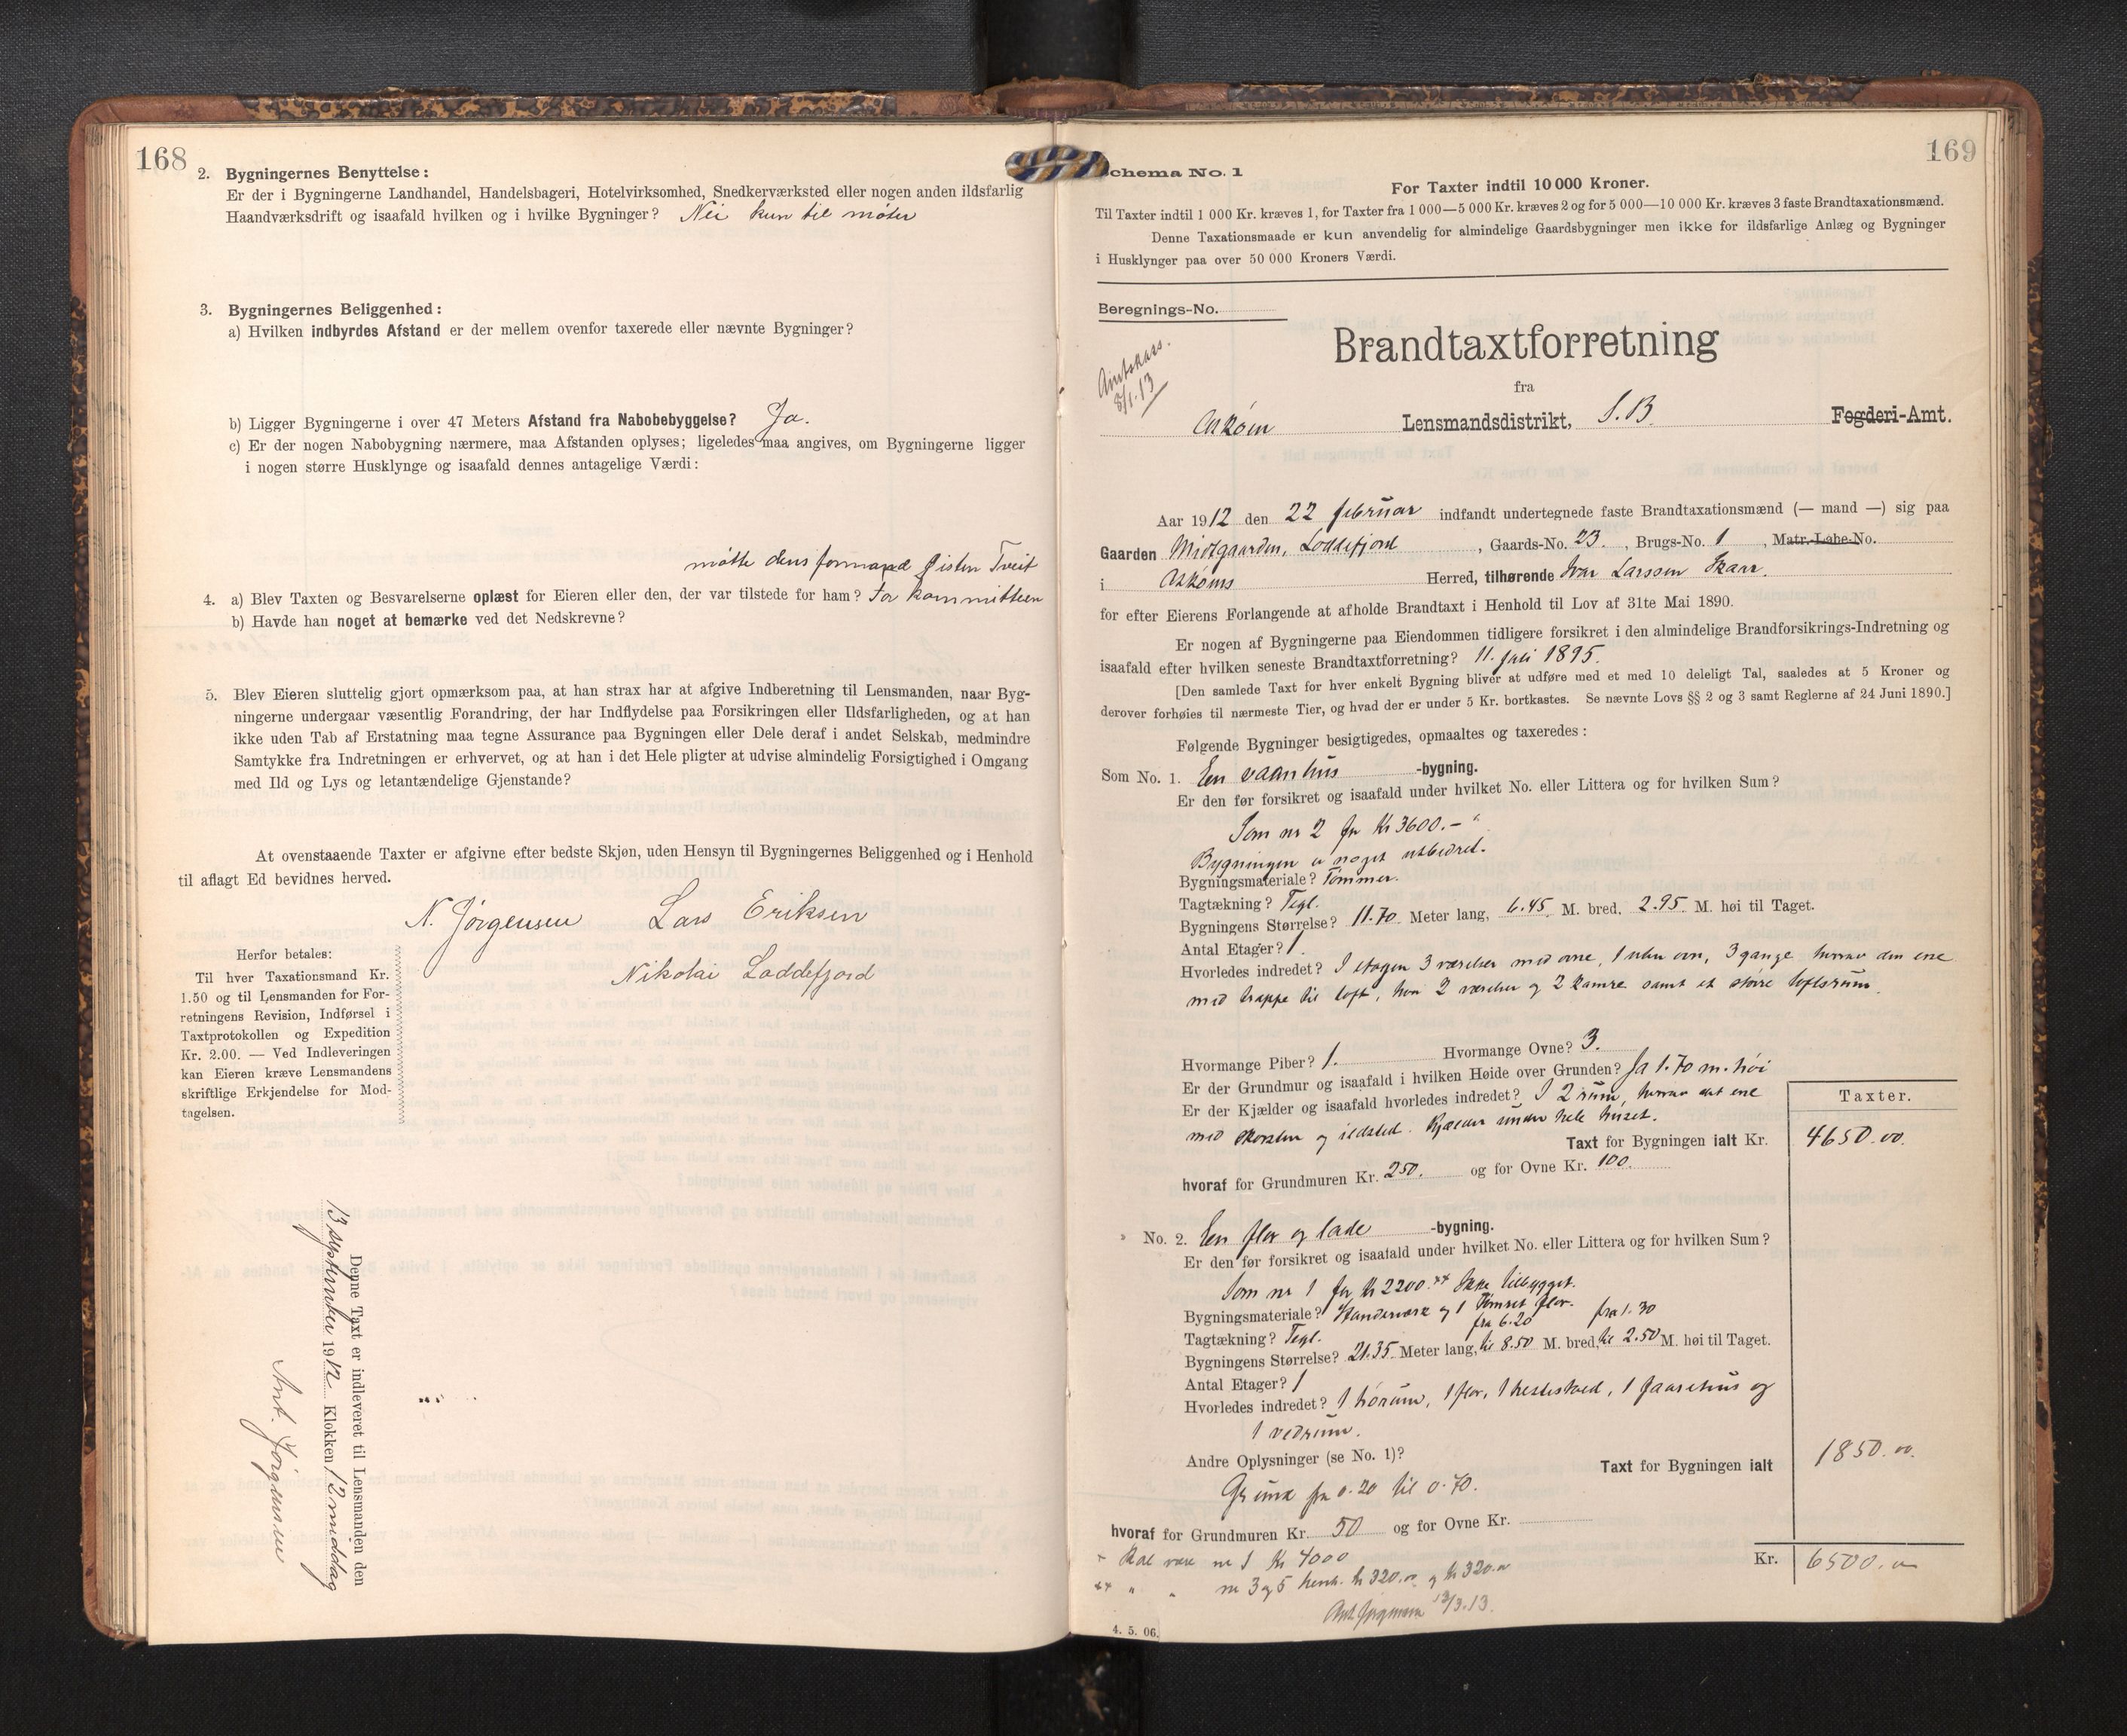 168
2. Bygningernes Benyttelse:
Er der i Bygningerne Landhandel, Handelsbageri, Hotelvirksomhed, Snedkerværksted eller nogen anden ildsfarlig
Haandværksdrift og isaafald hvilken og i hvilke Bygninger? Nei kun til møter
3. Bygningernes Beliggenhed:
a) Hvilken indbyrdes Afstand er der mellem ovenfor taxerede eller nævnte Bygninger?
b) Ligger Bygningerne i over 47 Meters Afstand fra Nabobebyggelse? Ja.
c) Er der nogen Nabobygning nærmere, maa Afstanden oplyses; ligeledes maa angives, om Bygningerne ligger
i nogen større Husklynge og isaafald dennes antagelige Værdi:
møtte dens formand Tveit
4. a) Blev Taxten og Besvarelserne oplæst for Eieren eller den, der var tilstede for ham? For kommitteen
b) Havde han noget at bemærke ved det Nedskrevne?
5. Blev Eieren sluttelig gjort opmærksom paa, at han strax har at afgive Indberetning til Lensmanden, naar Byg-
ningerne undergaar væsentlig Forandring, der har Indflydelse paa Forsikringen eller Ildsfarligheden, og at han
ikke uden Tab af Erstatning maa tegne Assurance paa Bygningen eller Dele deraf i andet Selskab, medmindre
Samtykke fra Indretningen er erhvervet, og at han i det Hele pligter at udvise almindelig Forsigtighed i Omgang
med Ild og Lys og letantændelige Gjenstande?
At ovenstaaende Taxter er afgivne efter bedste Skjøn, uden Hensyn til Bygningernes Beliggenhed og i Henhold
til aflagt Ed bevidnes herved.
N. Jørgensen Lars Eriksen
Nikolai Loddefjord
Herfor betales:
Til hver Taxationsmand Kr.
1.50 og til Lensmanden for For-
retningens Revision, Indførsel i
Taxtprotokollen og Expedition
Kr. 2.00. — Ved Indleveringen
kan Eieren kræve Lensmandens
skriftlige Erkjendelse for Mod-
tagelsen.
Denne Taxt er indleveret til Lensmanden den
13 september 1912 Klokken 12 middag
Ant. Jørgensen
169
chema No. 1
For Taxter indtil 10 000 Kroner.
Til Taxter indtil 1 000 Kr. kræves 1, for Taxter fra 1 000—5 000 Kr. kræves 2 og for 5 000—10 000 Kr. kræves 3 faste Brandtaxationsmænd.
Denne Taxationsmaade er kun anvendelig for almindelige Gaardsbygninger men ikke for ildsfarlige Anlæg og Bygninger
i Husklynger paa over 50 000 Kroners Værdi.
Beregnings-No.
Amtskass.
8/1.13
Brandtaxtforretning
fra
Askøen Lensmandsdistrikt, S. B Fogderi-Amt.
Aar 1912 den 22 februar indfandt undertegnede faste Brandtaxationsmænd (— mand —) sig paa
Gaarden Midtgaarden, Loddefjord, Gaards-No. 23., Brugs-No. 1, Matr.-Løbe-No.
i Askøens Herred, tilhørende Ivar Larssen Skaar.
for efter Eierens Forlangende at afholde Brandtaxt i Henhold til Lov af 31te Mai 1890.
Er nogen af Bygningerne paa Eiendommen tidligere forsikret i den almindelige Brandforsikrings-Indretning og
isaafald efter hvilken seneste Brandtaxtforretning? 11. juli 1895.
[Den samlede Taxt for hver enkelt Bygning bliver at udføre med et med 10 deleligt Tal, saaledes at 5 Kroner og
derover forhøies til nærmeste Tier, og hvad der er under 5 Kr. bortkastes. Se nævnte Lovs §§ 2 og 3 samt Reglerne af 24 Juni 1890.]
Følgende Bygninger besigtigedes, opmaaltes og taxeredes:
Som No. 1. En vaanhus -bygning.
Er den før forsikret og isaafald under hvilket No. eller Littera og for hvilken Sum?
Som nr 2 for Kr 3600.-
Bygningen er noget utbedret.
Bygningsmateriale? Tømmer.
Tagtækning? Tegl.
Bygningens Størrelse? 11.70 Meter lang, 6.45 M. bred, 2.95 M. høi til Taget.
Antal Etager? 1.
Hvorledes indredet? I etagen 3 værelser med ovne, 1 uten ovn, 3 gange hvorav den ene
med trappe til loft, hvor 2 værelser og 2 kamre samt et større loftsrum.
Hvormange Piber? 1. Hvormange Ovne? 3.
Er der Grundmur og isaafald i hvilken Høide over Grunden? Ja 1.70 m. høi
Er der Kjælder og isaafald hvorledes indredet? I 2 rum, hvorav det ene
med skorsten og ildsted. Kjælder under hele huset.
Taxter.
Taxt for Bygningen ialt Kr. 4650.00.
hvoraf for Grundmuren Kr. 250. og for Ovne Kr. 100.
» No. 2. En flor og lade -bygning.
Er den før forsikret og isaafald under hvilket No. eller Littera og for hvilken Sum?
Som nr 1 for kr 2200.xx Ikke tilbygget.
Bygningsmateriale? Standerverk og 1 tømret flor.
fra 6.20 fra 1.30
Tagtækning? Tegl.
Bygningens Størrelse? 21.35 Meter lang, til 8.50 M. bred, til 2.50 M. høi til Taget.
Antal Etager? 1
Hvorledes indredet? 1 hørum, 1 flor, 1 hestestald, 1 faarehus og
1 vedrum.
Andre Oplysninger (se No. 1)?
Taxt for Bygningen ialt 1850.00.
Grund fra 0.20 til 0.70.
hvoraf for Grundmuren Kr. 50 og for Ovne Kr.
Kr. 6500.00
x skal være nr 1 Kr 4000
xx " " nr 3 og 5 henh. kr 320.00 og kr 320.00
Ant. Jørgensen 13/3.13.
4. 5. 06.